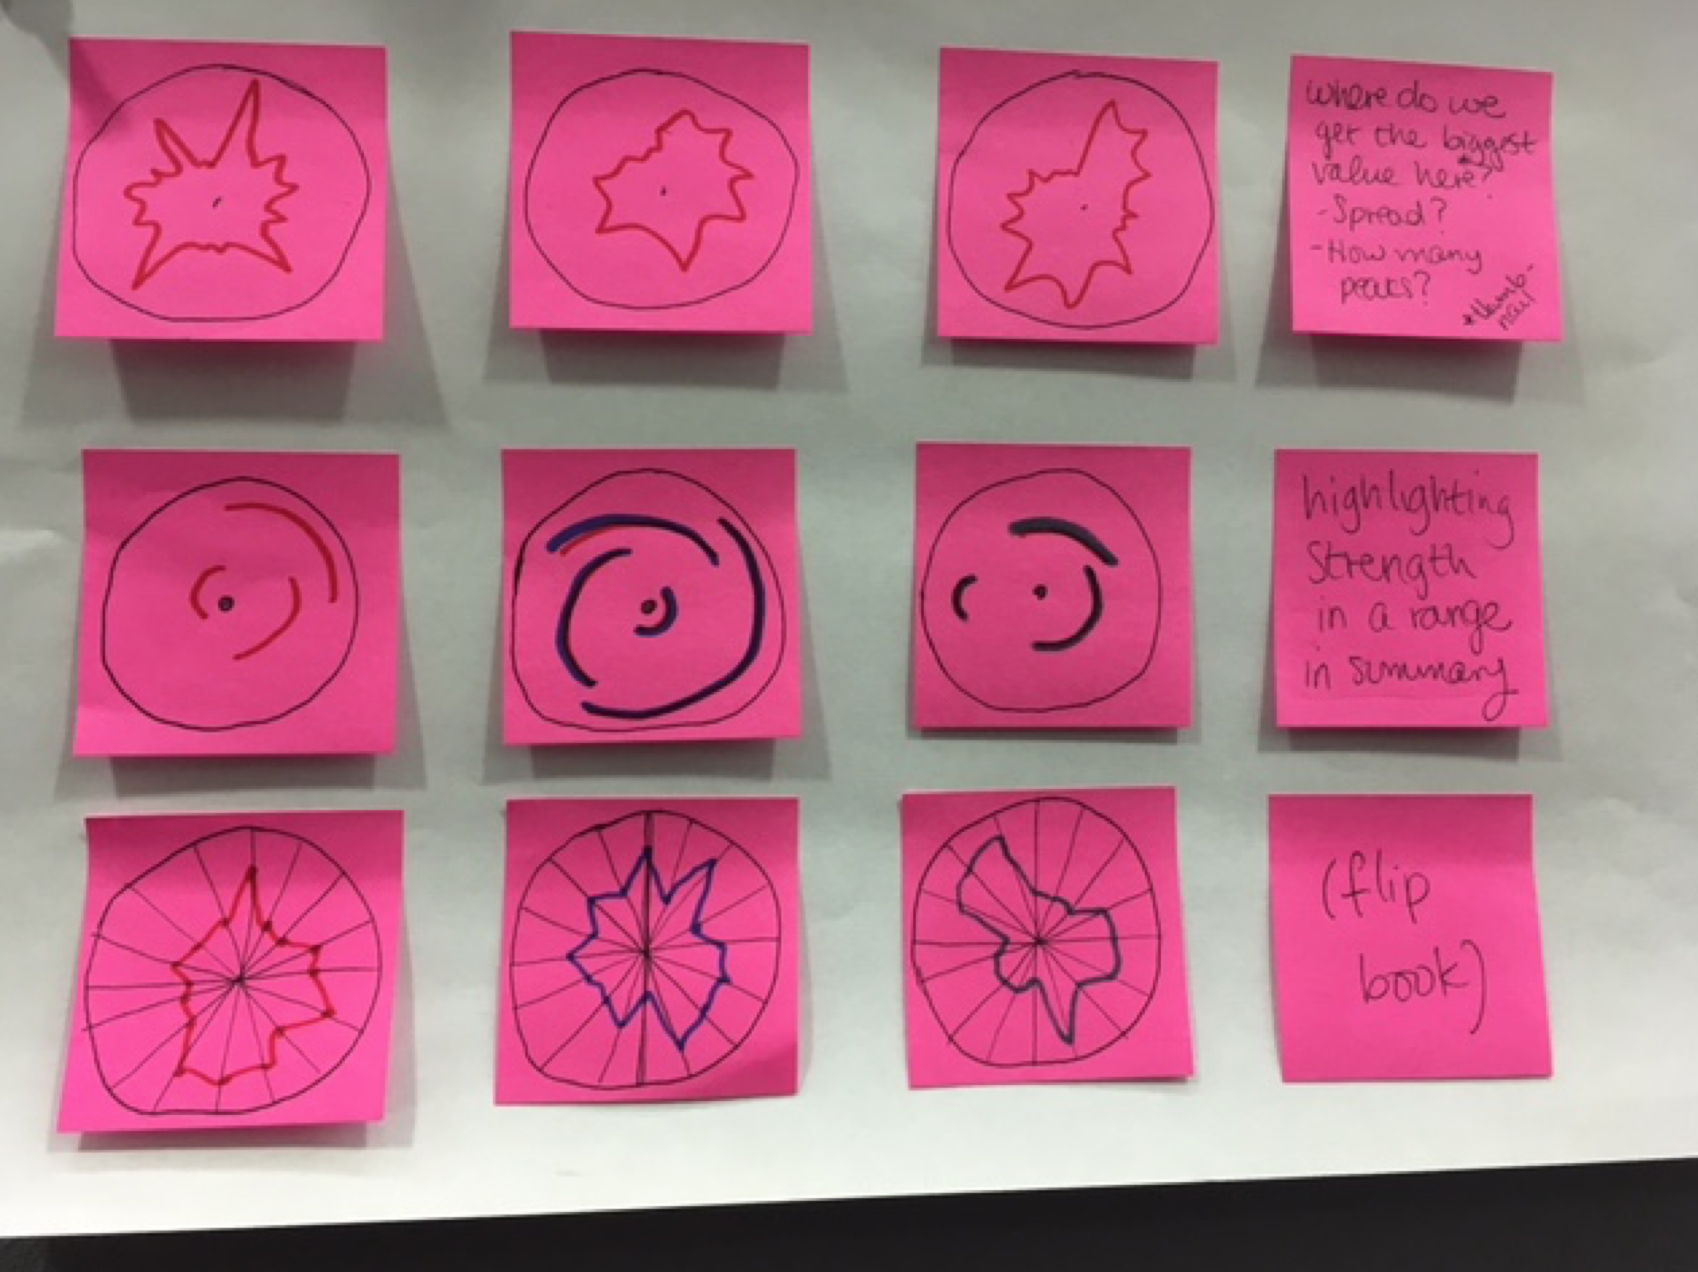 where do we
get the biggest
value here?
- Spread?
- How many
peaks?
*thumb-
nail
highlighting
Strength
in a range
in summary
(flip
book)